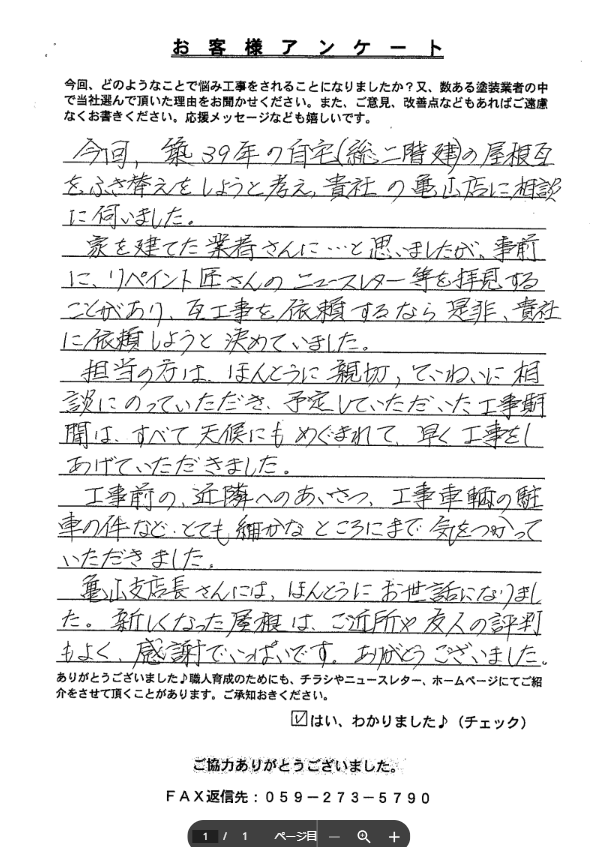 お客様アンケート
今回、どのようなことで悩み工事をされることになりましたか？又、数ある塗装業者の中
で当社選んで頂いた理由をお聞かせください。また、ご意見、改善点などもあればご遠慮
なくお書きください。応援メッセージなども嬉しいです。
今回、築39年の自宅(総二階建)の屋根瓦
をふき替えをしようと考え、貴社の亀山店に相談
に伺いました。
家を建てた業者さんに…と思いましたが、事前
に、リペイント匠さんのニュースレター等を拝見する
ことがあり、瓦工事を依頼するなら是非、貴社
に依頼しようと決めていました。
担当の方は、ほんとうに親切、ていねいに相
談にのっていただき、予定していただいた工事期
間は、すべて天候にもめぐまれて、早く工事をし
あげていただきました。
工事前の、近隣へのあいさつ、工事車輌の駐
車の件など、とても細かなところにまで気をつかって
いただきました。
亀山支店長さんには、ほんとうにお世話になりまし
た。新しくなった屋根は、ご近所や友人の評判
もよく、感謝でいっぱいです。ありがとうございました。
ありがとうございました♪職人育成のためにも、チラシやニュースレター、ホームページにてご紹
介をさせて頂くことがあります。ご承知おきください。
☑はい、わかりました♪（チェック）
ご協力ありがとうございました。
ＦＡＸ返信先：０５９－２７３－５７９０
1 / 1 ページ目 － ＋